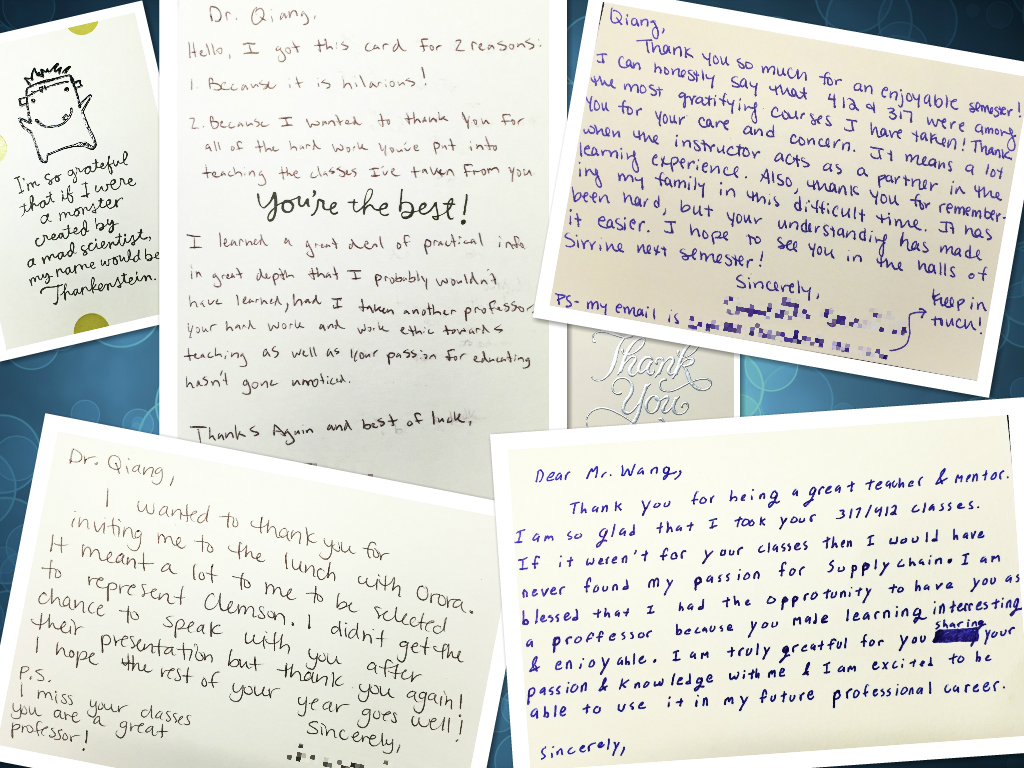 I'm so grateful
that if I were
a monster
created by
a mad scientist,
my name would be
Thankenstein.
Dr. Qiang,
Hello, I got this card for 2 reasons:
1. Because it is hilarious!
2. Because I wanted to thank you for
all of the hard work you've put into
teaching the classes I've taken from you
You're the best!
I learned a great deal of practical info
in great depth that I probably wouldn't
have learned, had I taken another professor
your hard work and work ethic towards
teaching as well as your passion for educating
hasn't gone unnoticed.
Thanks Again and best of luck,
Qiang,
Thank you so much for an enjoyable semester!
I can honestly say that 412 & 317 were among
the most gratifying courses I have taken! Thank
you for your care and concern. It means a lot
when the instructor acts as a partner in the
learning experience. Also, thank you for remember-
ing my family in this difficult time. It has
been hard, but your understanding has made
it easier. I hope to see you in the halls of
Sirrine next semester!
Sincerely,
PS- my email is
Keep in
touch!
Thank
You
Dr. Qiang,
I wanted to thank you for
inviting me to the lunch with Orora.
It meant a lot to me to be selected
to represent Clemson. I didn't get the
chance to speak with you after
their presentation but thank you again!
I hope the rest of your year goes well!
Sincerely,
P.S.
I miss your classes
you are a great
professor!
Dear Mr. Wang,
Thank you for being a great teacher & mentor.
I am so glad that I took your 317/412 classes.
If it weren't for your classes then I would have
never found my passion for Supply chain. I am
blessed that I had the opprotunity to have you as
a proffessor because you made learning interesting
& enjoyable. I am truly greatful for you sharing your
passion & knowledge with me & I am excited to be
able to use it in my future professional career.
Sincerely,